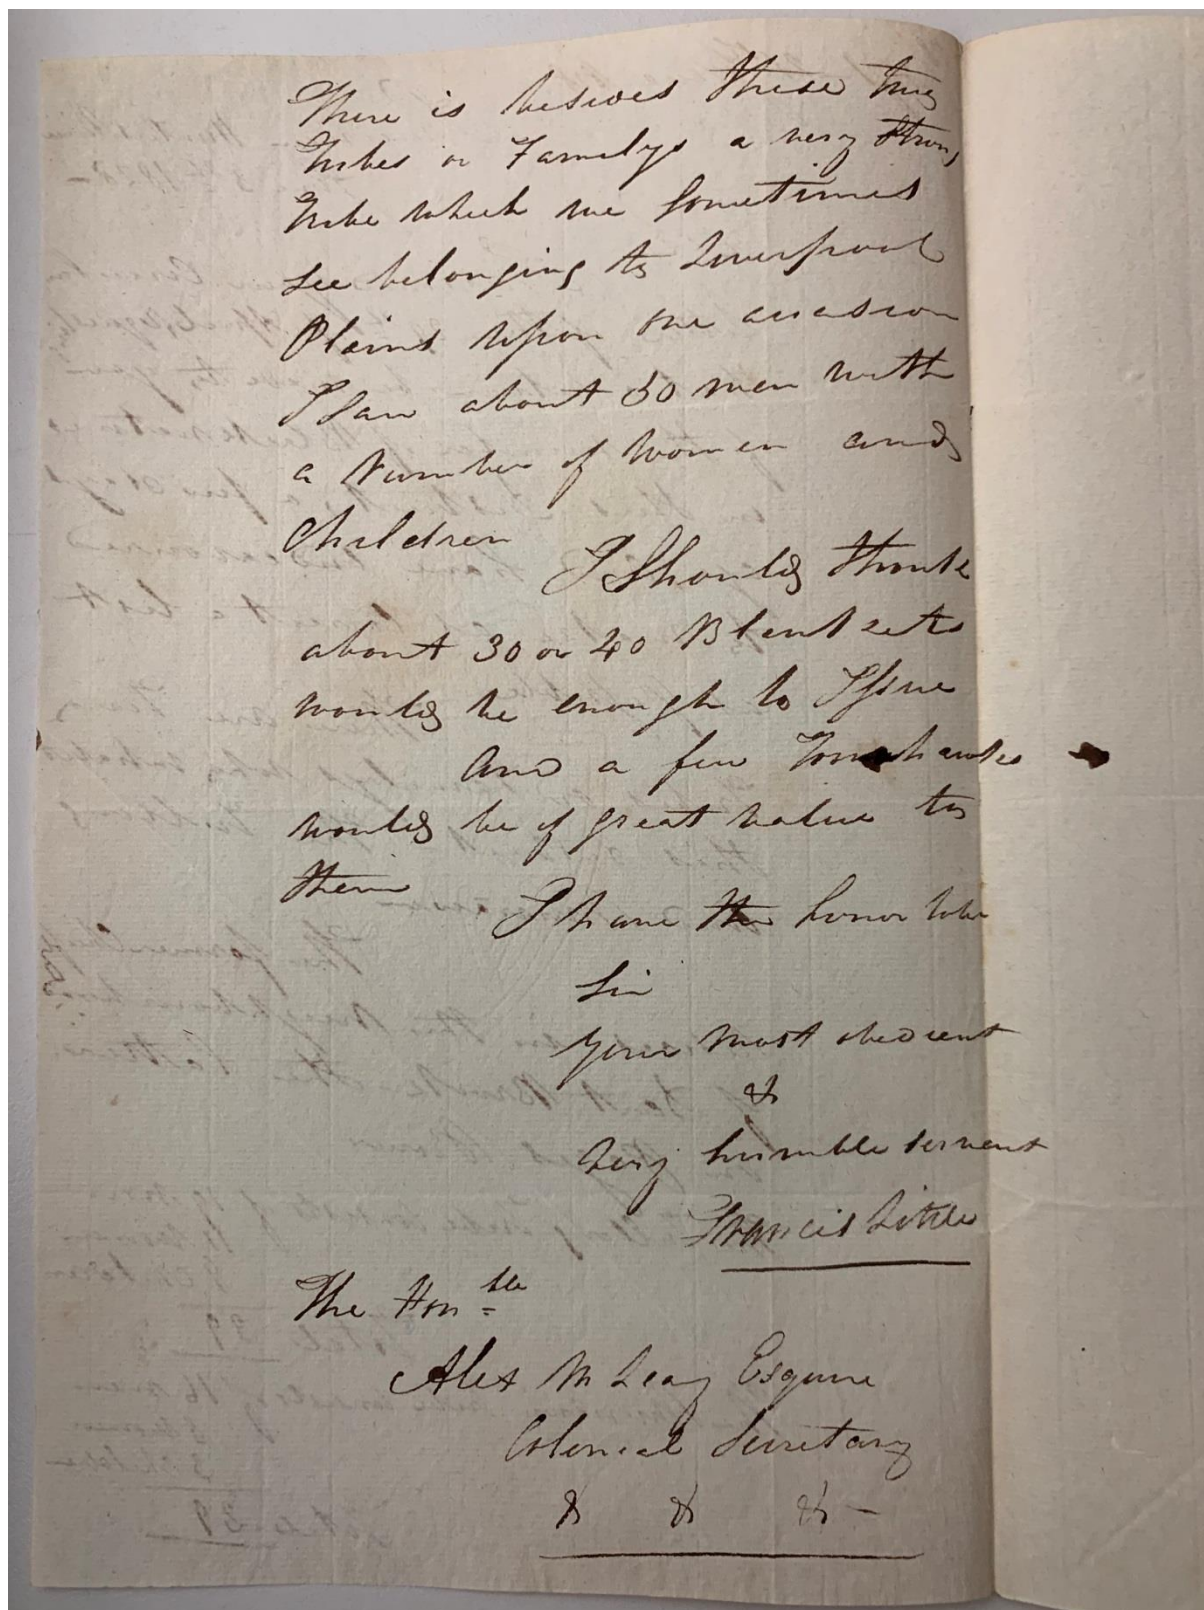 There is besides these two
Tribes or Familys a very Stron
Tribe which we Sometimes
See belonging to Liverpool
Plains Upon one occasion
I Saw about 50 men with
a Number of Women and
Children
I Should think
about 30 or 40 Blankets
would be enough to Issue
And a few Tomahawks
would be of great value to
them
I have the honor to be
Sir
Your most obedient
&
Very humble servant
Francis Little
The Honble
Alex McLeay Esquire
Colonial Secretary
& & &